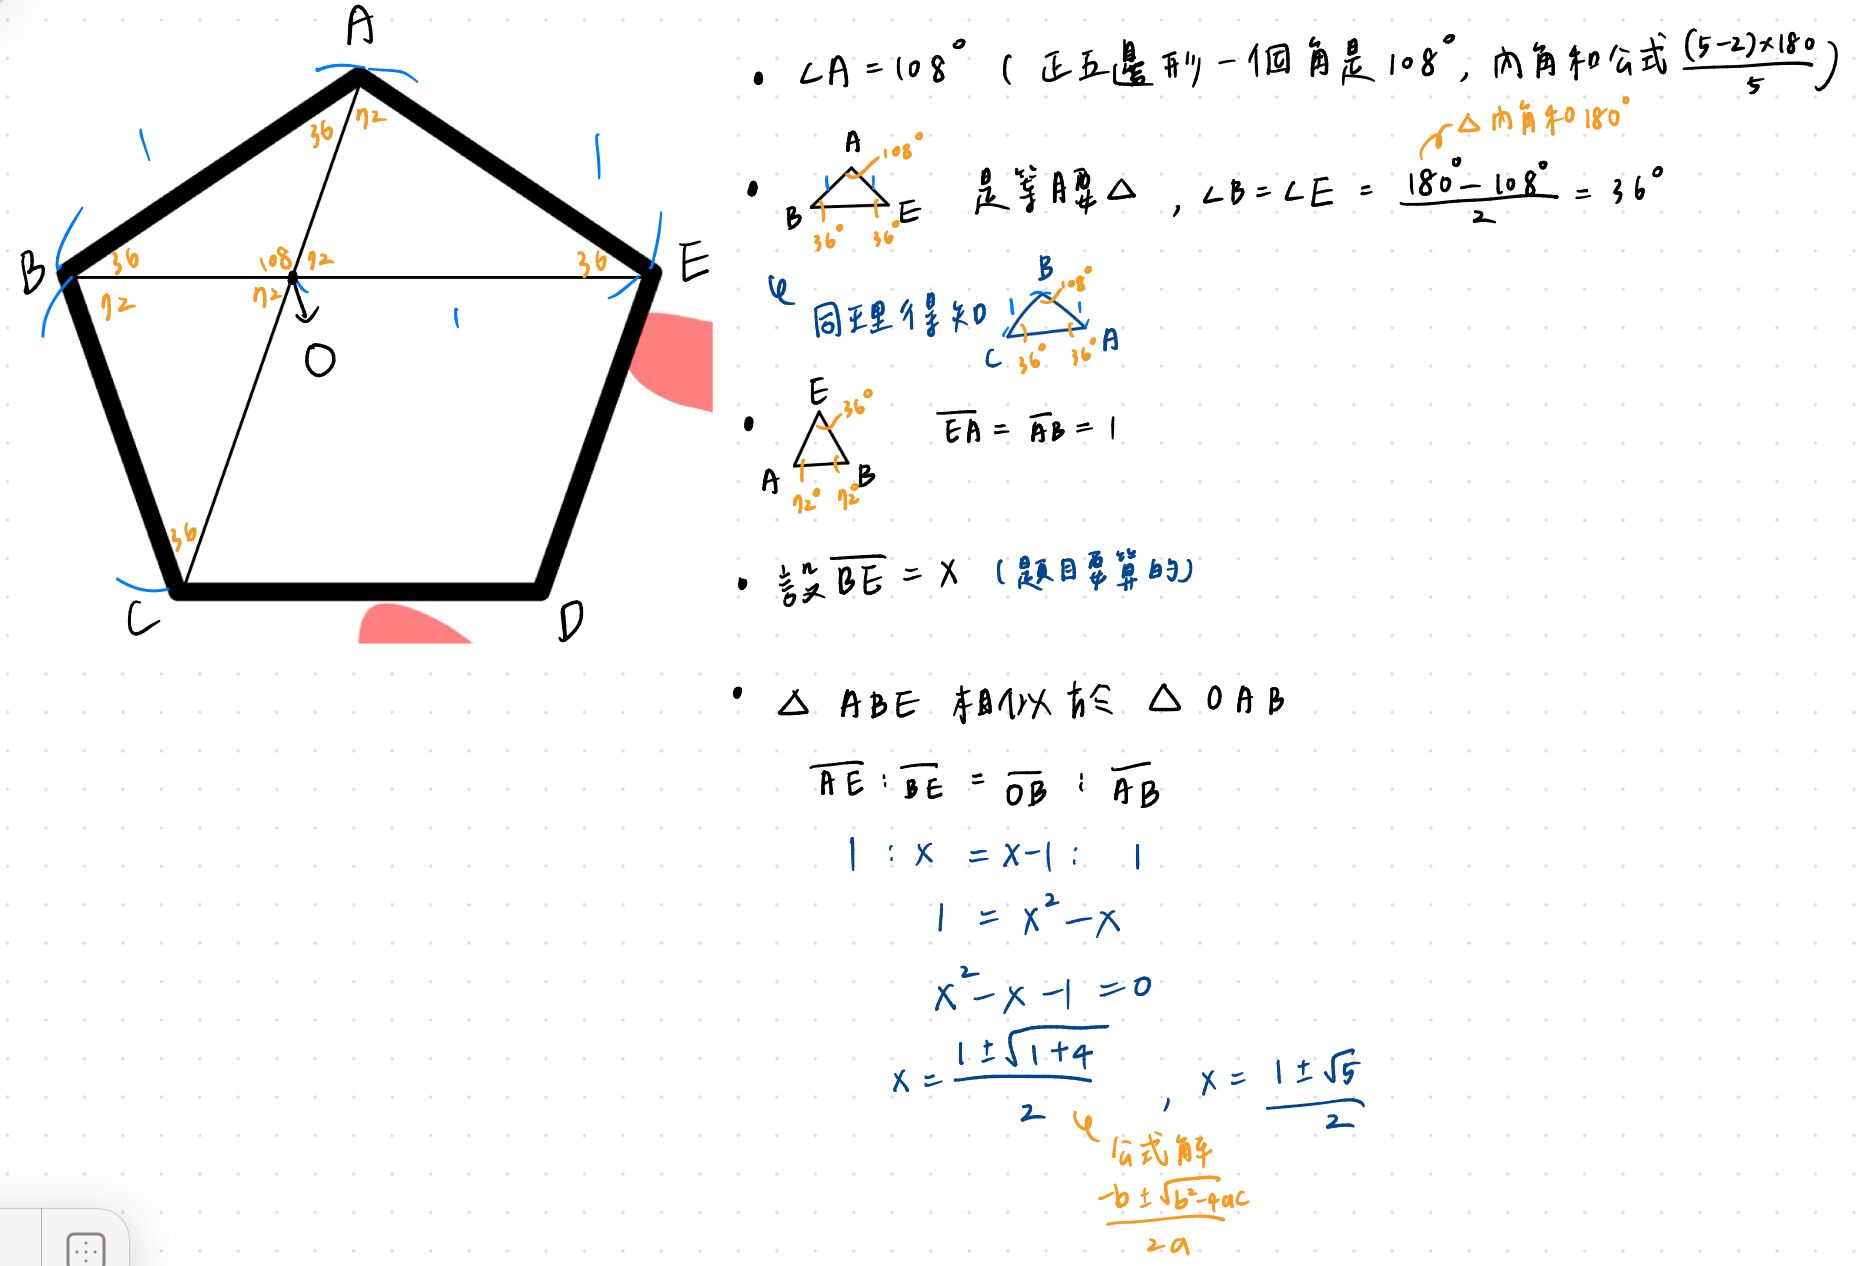 A
36 72
1 1
B 36 108 72 36 E
72 72 1
O
36
C D
• ∠A = 108° ( 正五邊形一個角是108°, 內角和公式 (5-2)×180 / 5 )
△內角和180°
• A 108° B 36° 36° E 是等腰△ , ∠B = ∠E = 180°-108° / 2 = 36°
同理得知 B 108° 1 1 C 36° 36° A
• E 36° A 72° 72° B EA = AB = 1
• 設 BE = x (題目要算的)
• △ ABE 相似於 △ OAB
AE : BE = OB : AB
1 : x = x-1 : 1
1 = x² - x
x² - x - 1 = 0
x = 1 ± √1+4 / 2 , x = 1 ± √5 / 2
公式解
-b ± √b²-4ac / 2a